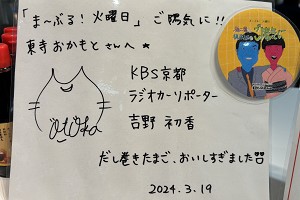 「ま〜ぶる！火曜日」ご陽気に!!
東寺おかもとさんへ★
KBS京都
ラジオカーリポーター
吉野 初香
だし巻きたまご、おいしすぎました
2024.3.19